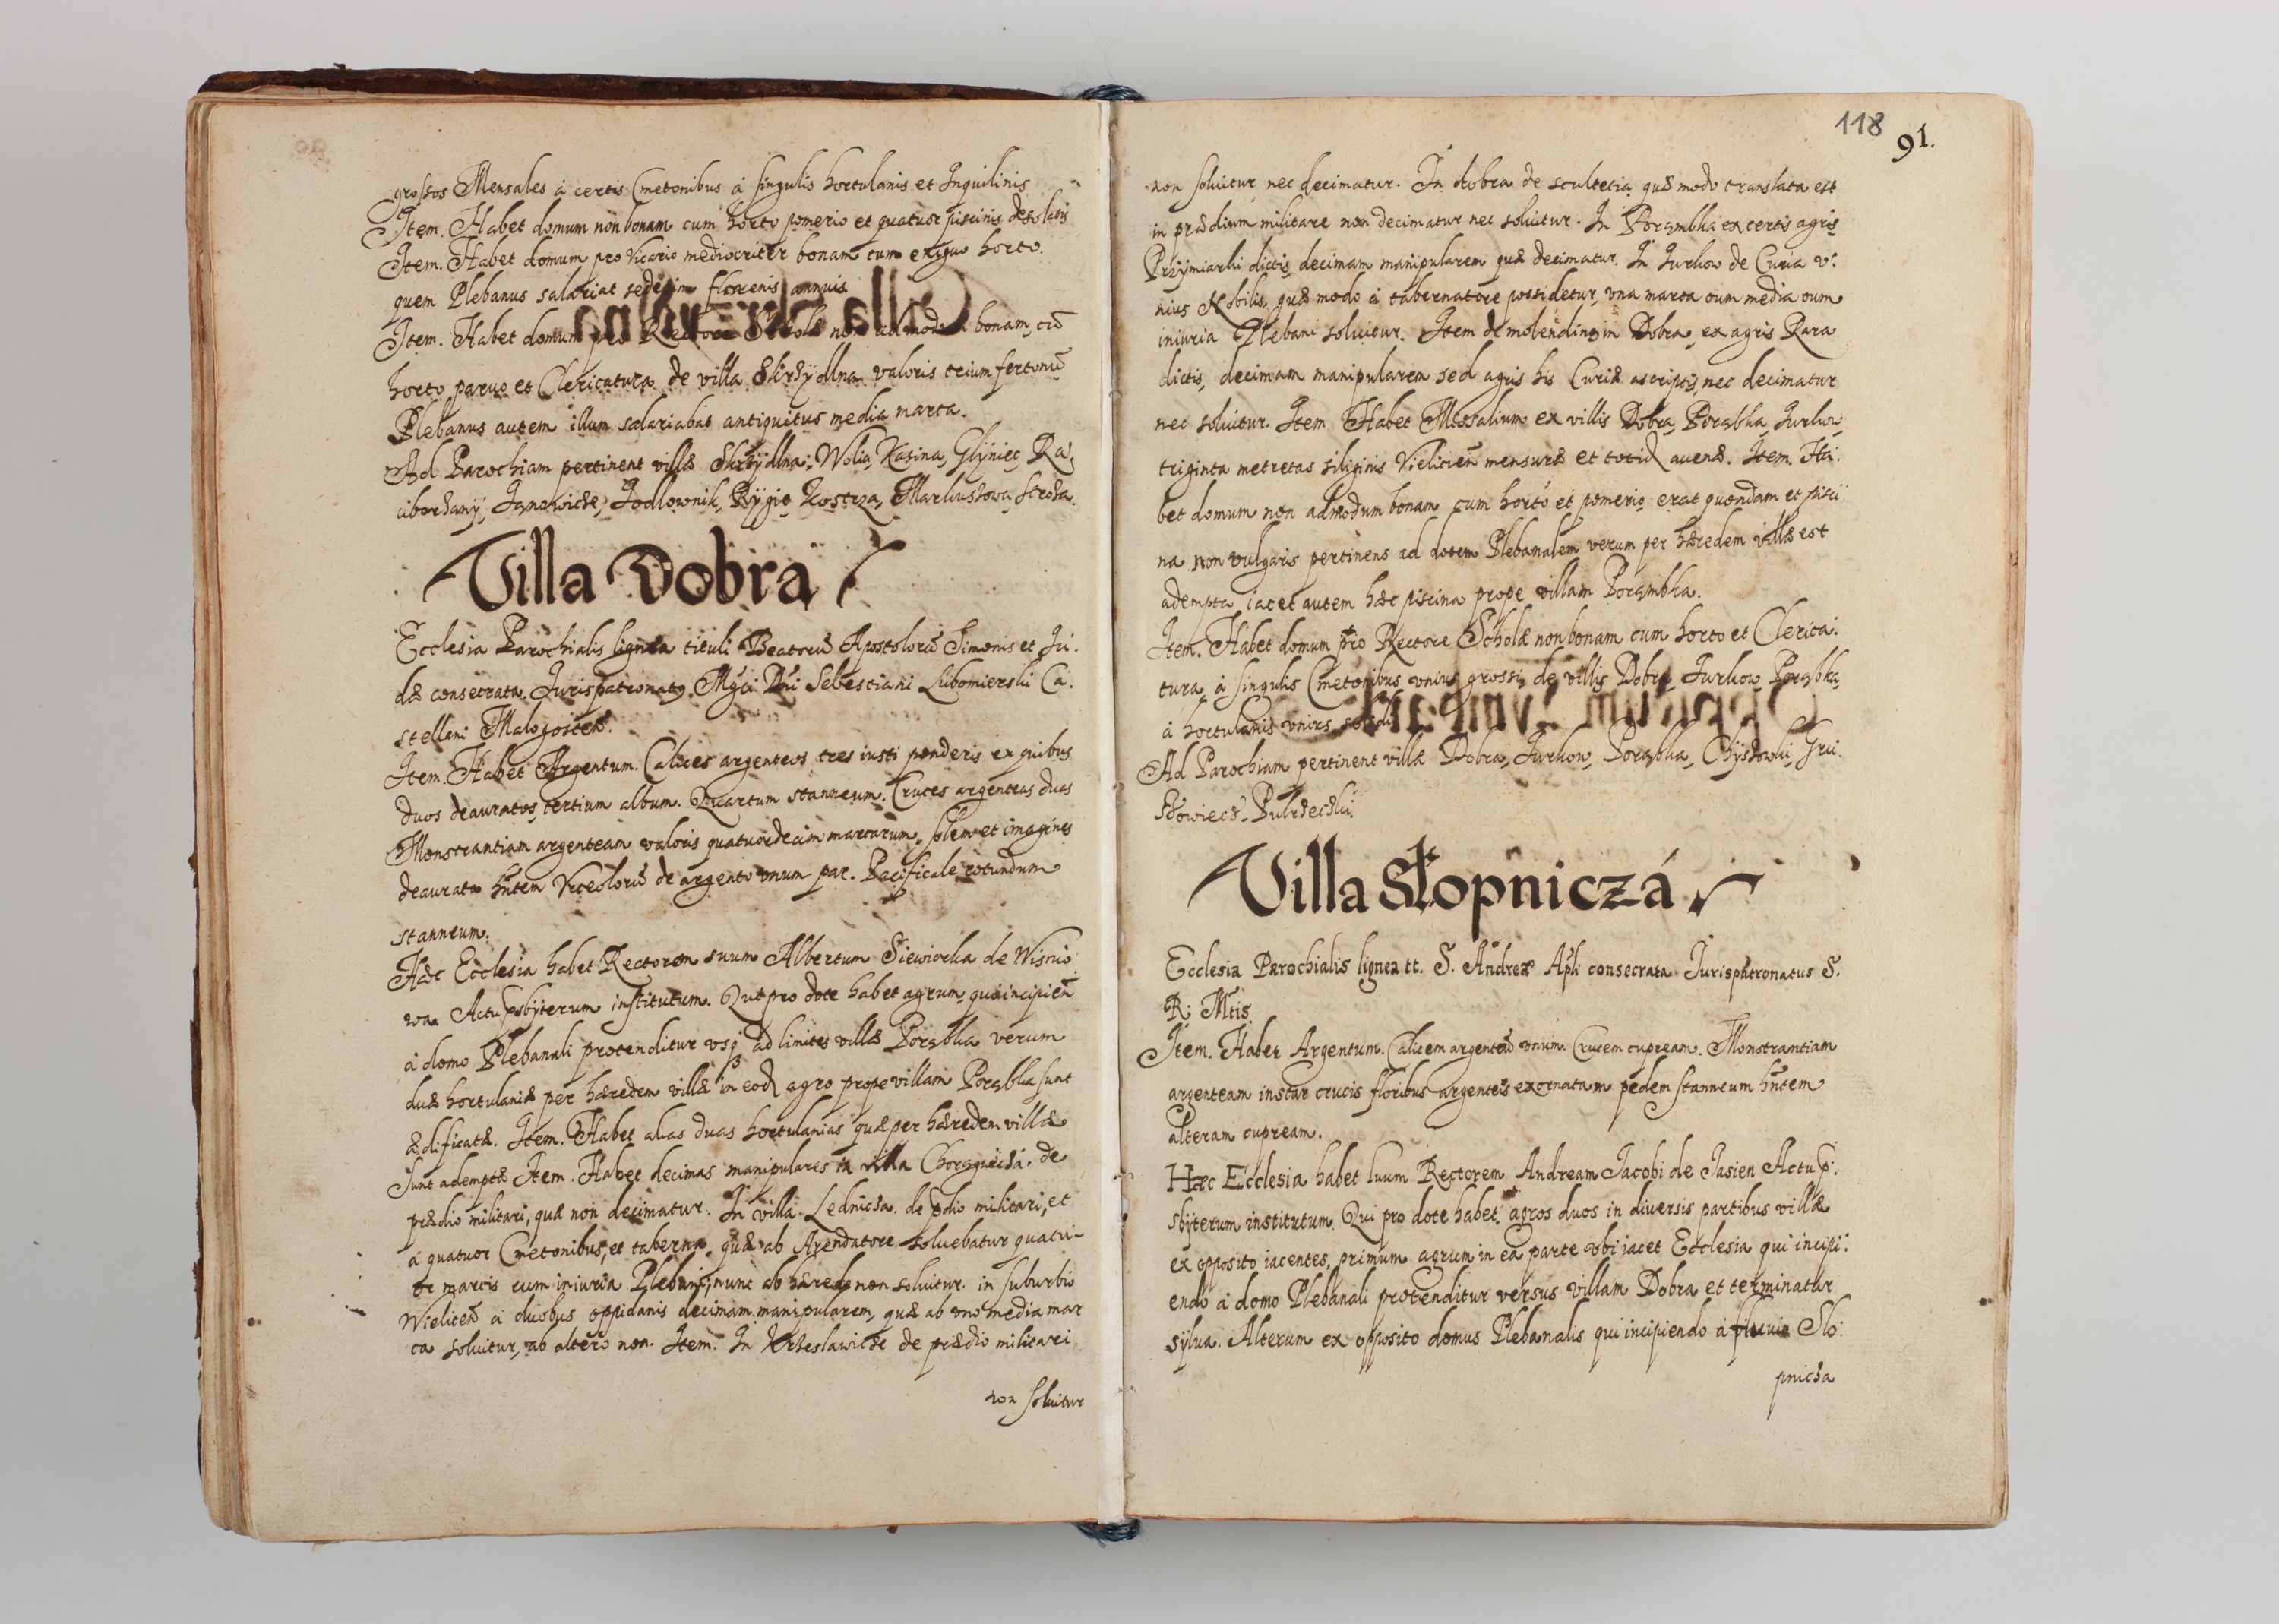 grossos Mensales à certis Cmetonibus à singulis hortulanis et Inquilinis
Item. Habet domum non bonam cum horto pomerio et quatuor piscinis desolatis
Item. Habet domum pro Vicario mediocriter bonam cum exiguo horto.
quem Plebanus salariat sedecim florenis annuis
Item. Habet domum pro Rectore Scholæ non admodum bonam, cū
horto paruo et Clericatura de villa Skrzÿdlna valoris trium fertonū
Plebanus autem illum salariabat antiquitus media marca.
Ad Parochiam pertinent villæ Skrzÿdlna, Wolia, Kasina, Glÿniec, Ra-
ciborzanÿ, Janowicze, Jodlownik, Rÿgie, Kostrza, Markuszowa, Stroza.
Villa Dobra
Ecclesia Parochialis lignea tituli Beatorū Apostolorū Simonis et Ju:
dæ consecrata. Jurispatronatꝰ Mgci Dni Sebestiani Lubomierski Ca:
stellani Malogosteñ.
Item. Habet Argentum. Calices argenteos tres iusti ponderis ex quibus
duos deauratos, tertium album. Quartum stanneum. Cruces argenteas duas
Monstrantiam argenteam valoris quatuordecim marcarum, solem et imagines
deauratas hñtem Vrceolorū de argento vnum par. Pacificale rotundum
stanneum.
Hæc Ecclesia habet Rectorem suum Albertum Siewiorka de Wisnio
wa Actu psbÿterum institutum. Qui pro dote habet agrum, qui incipieñ
à domo Plebanali protenditur vsq ad limites villæ Porabka verum
duæ hortulaniæ per hæredem villæ in eod agro prope villam Porabka sunt
ædificatæ. Item. Habet alias duas hortulanias quæ per hæredem villæ
sunt ademptæ Item. Habet decimas manipulares in villa Choragwicza de
prædio militari, quæ non decimatur. In villa Lednicza de pdio militari, et
à quatuor Cmetonibus, et taberna quæ ab Arendatore soluebatur quatu-
or marcis cum iniuria Plebani, nunc ab hærede non soluitur. in suburbio
Wieliceñ à duobus oppidanis decimam manipularem, quæ ab vno media mar
ca soluitur, ab altero non. Item. In Krzeslawicze de prædio militari
non soluitur
118
91.
non soluitur nec decimatur. In dobra de scultetia quæ modo translata est
in prædium militare non decimatur nec soluitur. In Porambka ex certis agris
Przÿmiarki dictis, decimam manipularem quæ decimatur. In Jurkow de Curia v:
nius Nobilis, quæ modo à tabernatore possidetur, vna marca cum media cum
iniuria Plebani soluitur. Item de molendino in Dobra, ex agris Rara
dictis, decimam manipularem sed agris his Curiæ ascriptis, nec decimatur
nec soluitur. Item Habet Missalium ex villis Dobra, Porabka, Jurkow
triginta metretas siliginis Vielicieñ mensuræ et totid auenæ. Item. Ha:
bet domum non admodum bonam cum horto et pomerio, erat quondam et pisci
na non vulgaris pertinens ad dotem Plebanalem verum per hæredem villæ est
adempta, iacet autem hæc piscina prope villam Porambka.
Item. Habet domum pro Rectore Scholæ non bonam cum horto et Clerica:
tura, à singulis Cmetonibus vnius grossi, de villis Dobra, Jurkow, Porabka,
à hortulanis vnius solidi
Ad Parochiam pertinent villæ Dobra, Jurkow, Porabka, Chÿszowki, Gru:
szowiecz, Pulrzeczki.
Villa Słopniczá
Ecclesia Parochialis lignea tt. S. Andreæ Apli consecrata Jurispatronatus S.
R: Mtis.
Item. Habet Argentum. Calicem argenteū vnum. Crucem cupream. Monstrantiam
argenteam instar crucis floribus argenteis exornatam pedem stanneum hñtem
alteram cupream.
Hæc Ecclesia habet suum Rectorem Andream Jacobi de Jasien Actu p:
sbÿterum institutum. Qui pro dote habet, agros duos in diuersis partibus villæ
ex opposito iacentes, primum agrum in ea parte vbi iacet Ecclesia qui incipi:
endo à domo Plebanali protenditur versus villam Dobra et terminatur
sÿlua. Alterum ex opposito domus Plebanalis qui incipiendo à fluuio Slo:
pnicza